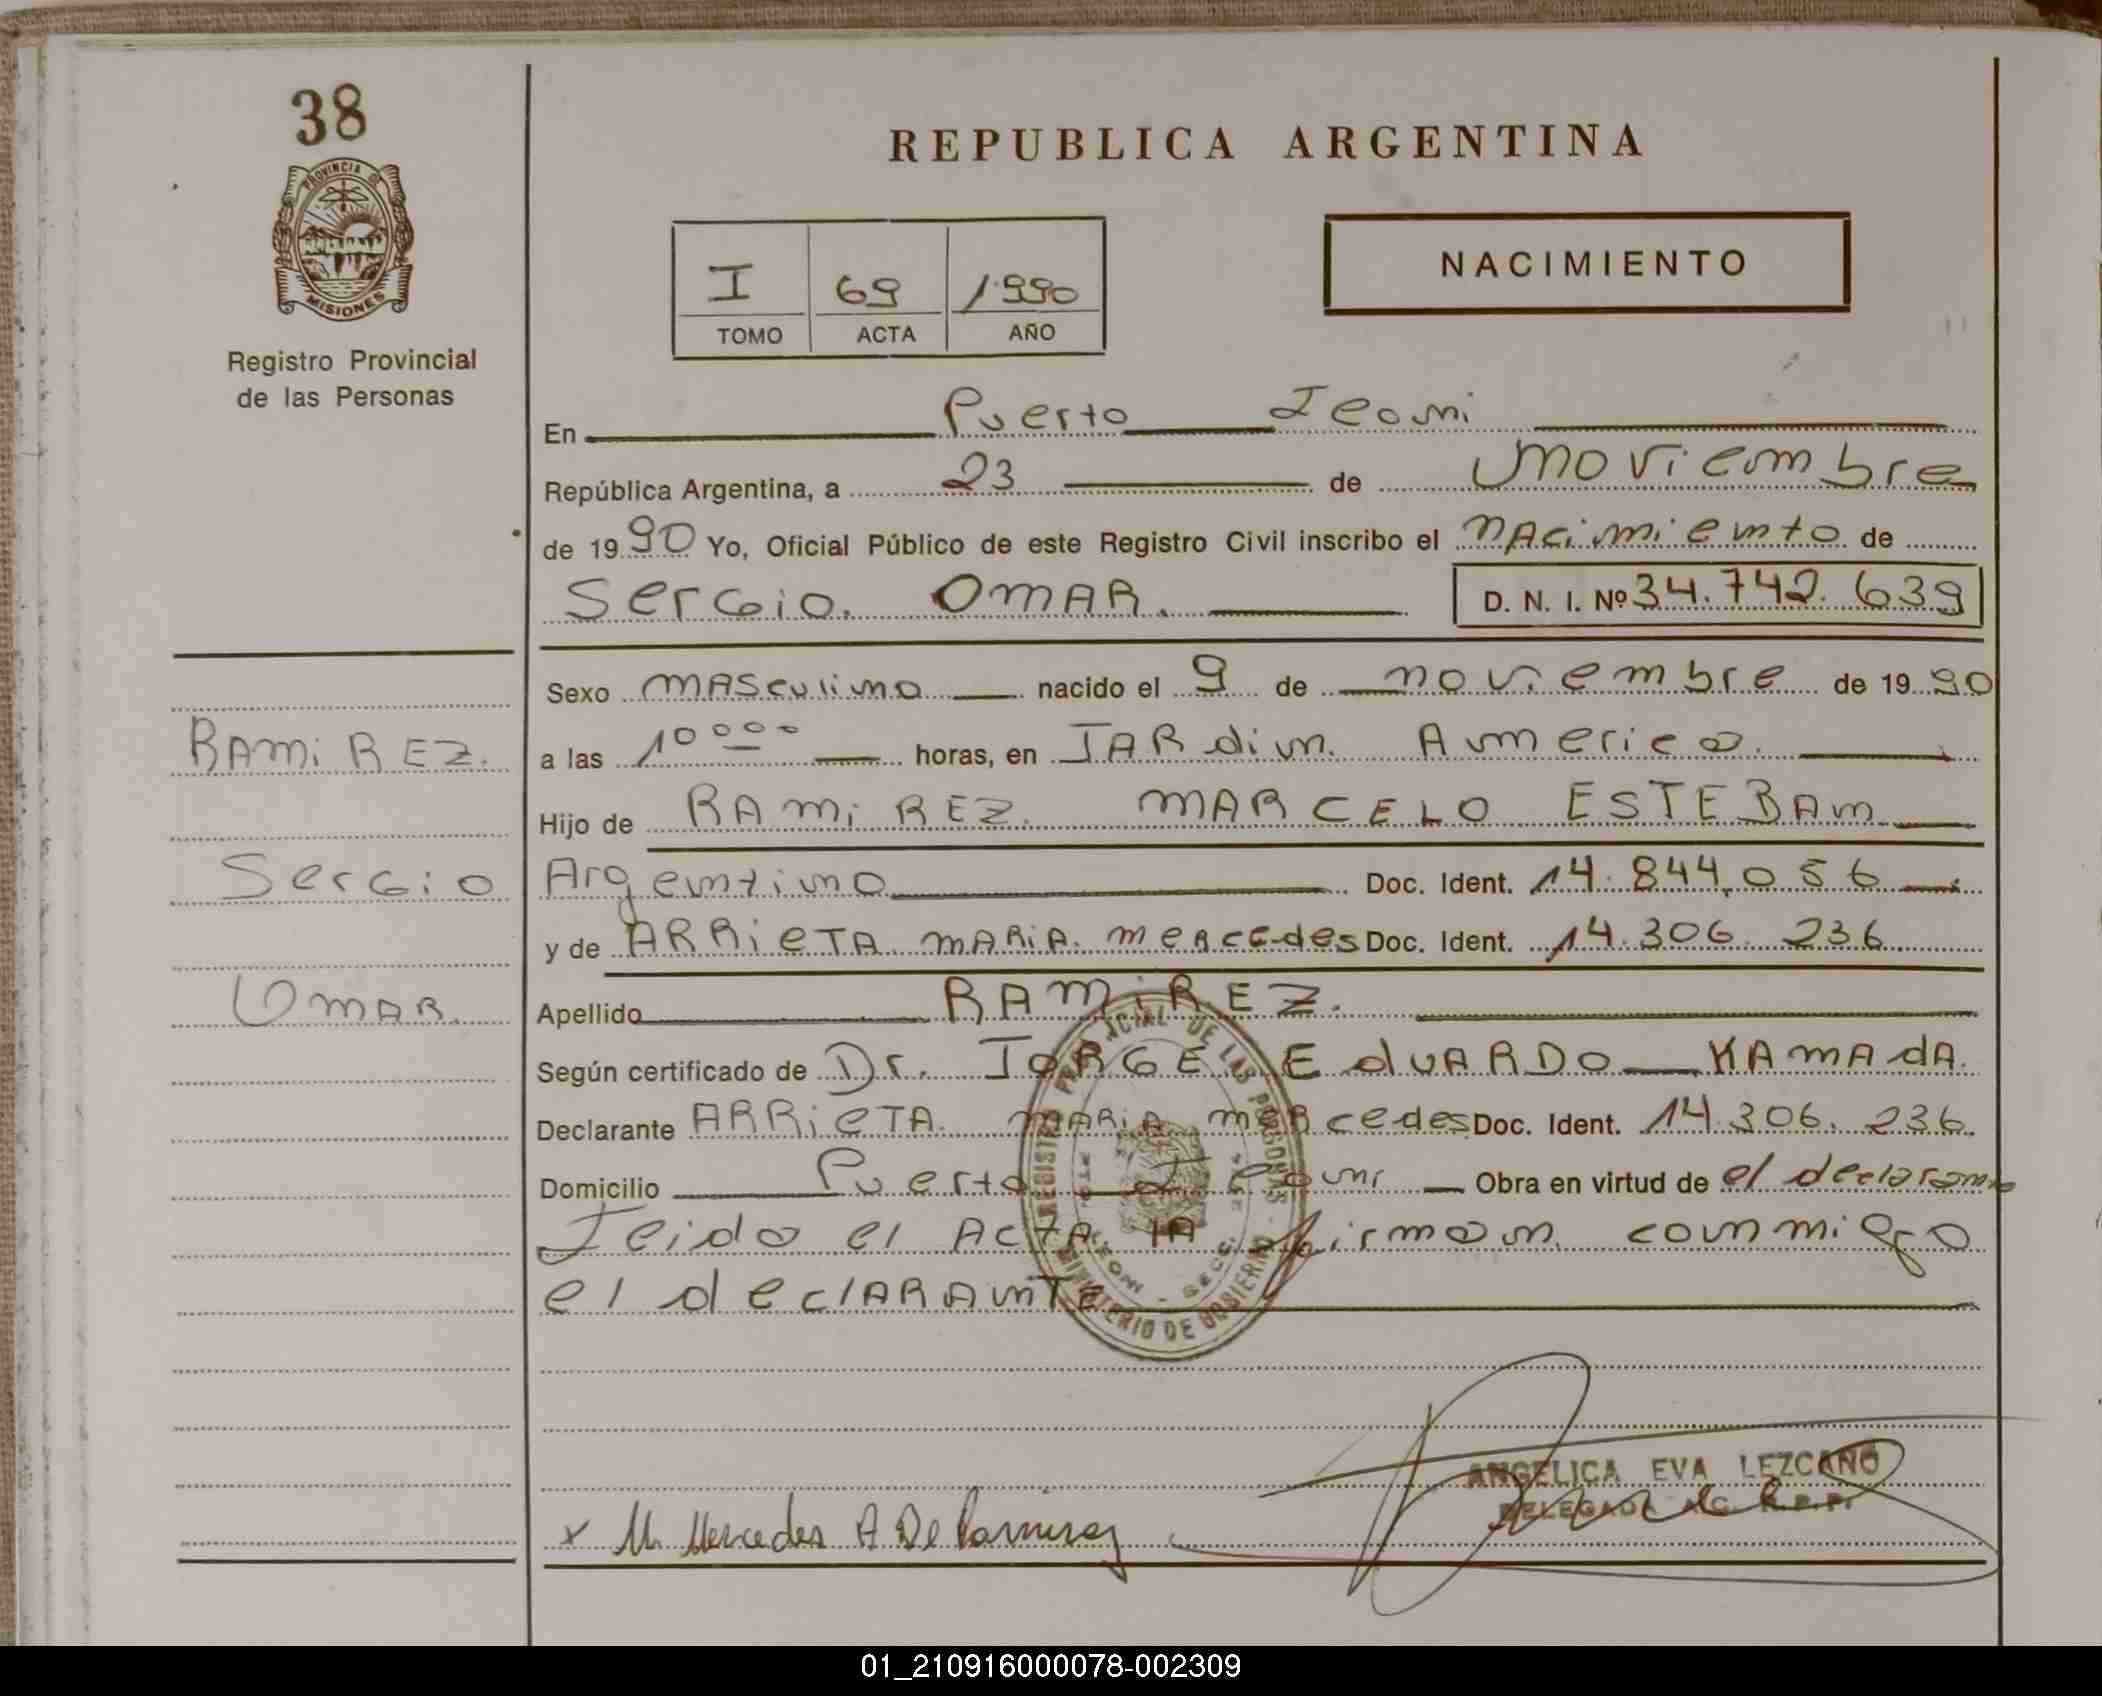 38
PROVINCIA DE
MISIONES
Registro Provincial
de las Personas
REPUBLICA ARGENTINA
I 69 1990
TOMO ACTA AÑO
NACIMIENTO
En Puerto Leoni
República Argentina, a 23 de Noviembre
de 1990 Yo, Oficial Público de este Registro Civil inscribo el nacimiento de
Sergio. OMAR. D. N. I. Nº 34.742.639
Sexo masculino nacido el 9 de noviembre de 1990
a las 10 0000 horas, en JARdin America.
RAMiREZ.
Hijo de RAMiREZ. MARCELO ESTEBAN
Sergio
Argentino Doc. Ident. 14.844.056
y de ARRieTA MARiA. mercedes Doc. Ident. 14.306.236
OMAR.
Apellido RAMiREZ.
Según certificado de Dr. JORGE EdUARDO KAMAdA.
Declarante ARRieTA MARiA mercedes Doc. Ident. 14.306.236.
Domicilio Puerto Leoni Obra en virtud de el declarante
Leida el ActA lA firman conmigo
el declARANTE
REGISTRO PROVINCIAL DE LAS PERSONAS
MINISTERIO DE GOBIERNO
PTO. LEONI - SECC.
ANGELICA EVA LEZCANO
DELEGADA R.P.P.
x M. Mercedes A De Ramirez
01_210916000078-002309